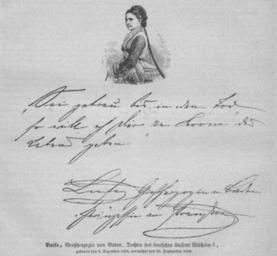 "Sei getreu bis in den Tod
so will ich dir die Krone des
Lebens geben"
Luise Großherzogin v Baden
Prinzessin von Preußen
Luise, Großherzogin von Baden, Tochter des deutschen Kaisers Wilhelm I.,
geboren den 3. Dezember 1838, vermählt den 20. September 1856.